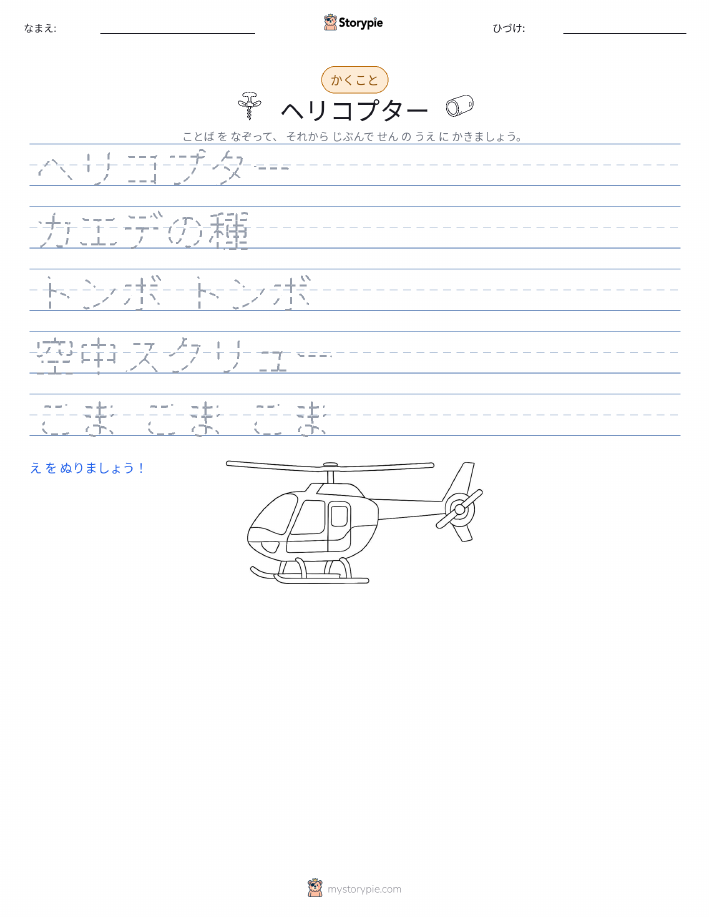 なまえ:
Storypie
ひづけ:
かくこと
ヘリコプター
ことば を なぞって、 それから じぶんで せん の うえ に かきましょう。
ヘリコプター
カエデの種
トンボ トンボ
空中スクリュー
こま こま こま
え を ぬりましょう！
mystorypie.com